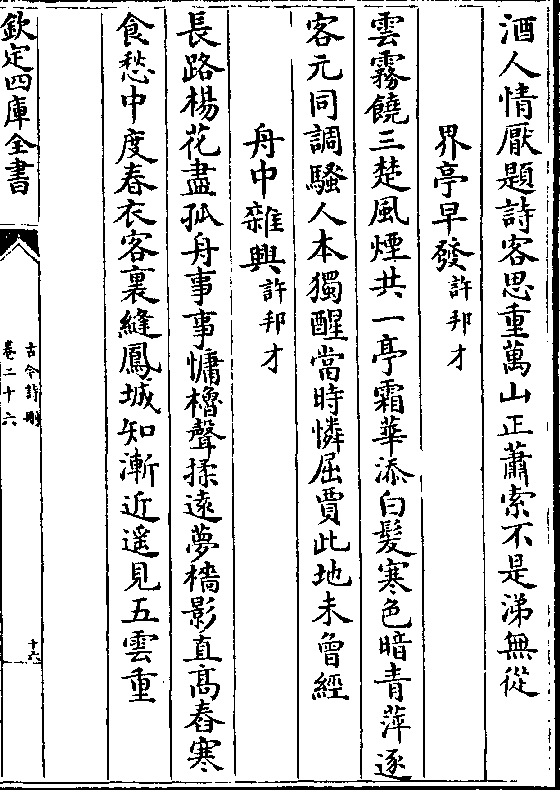 酒人情厭題詩客思重萬山正蕭索不是涕無從
界亭早發許邦才
雲霧饒三楚風煙共一亭霜華添白髮寒色暗青萍逐
客元同調騷人本獨醒當時憐屈賈此地未曾經
舟中雜興許邦才
長路楊花盡孤舟事事慵櫓聲揉遠夢檣影直高舂寒
食愁中度春衣客裏縫鳳城知漸近遥見五雲重
欽定四庫全書
古今詩刪
卷二十六
十六